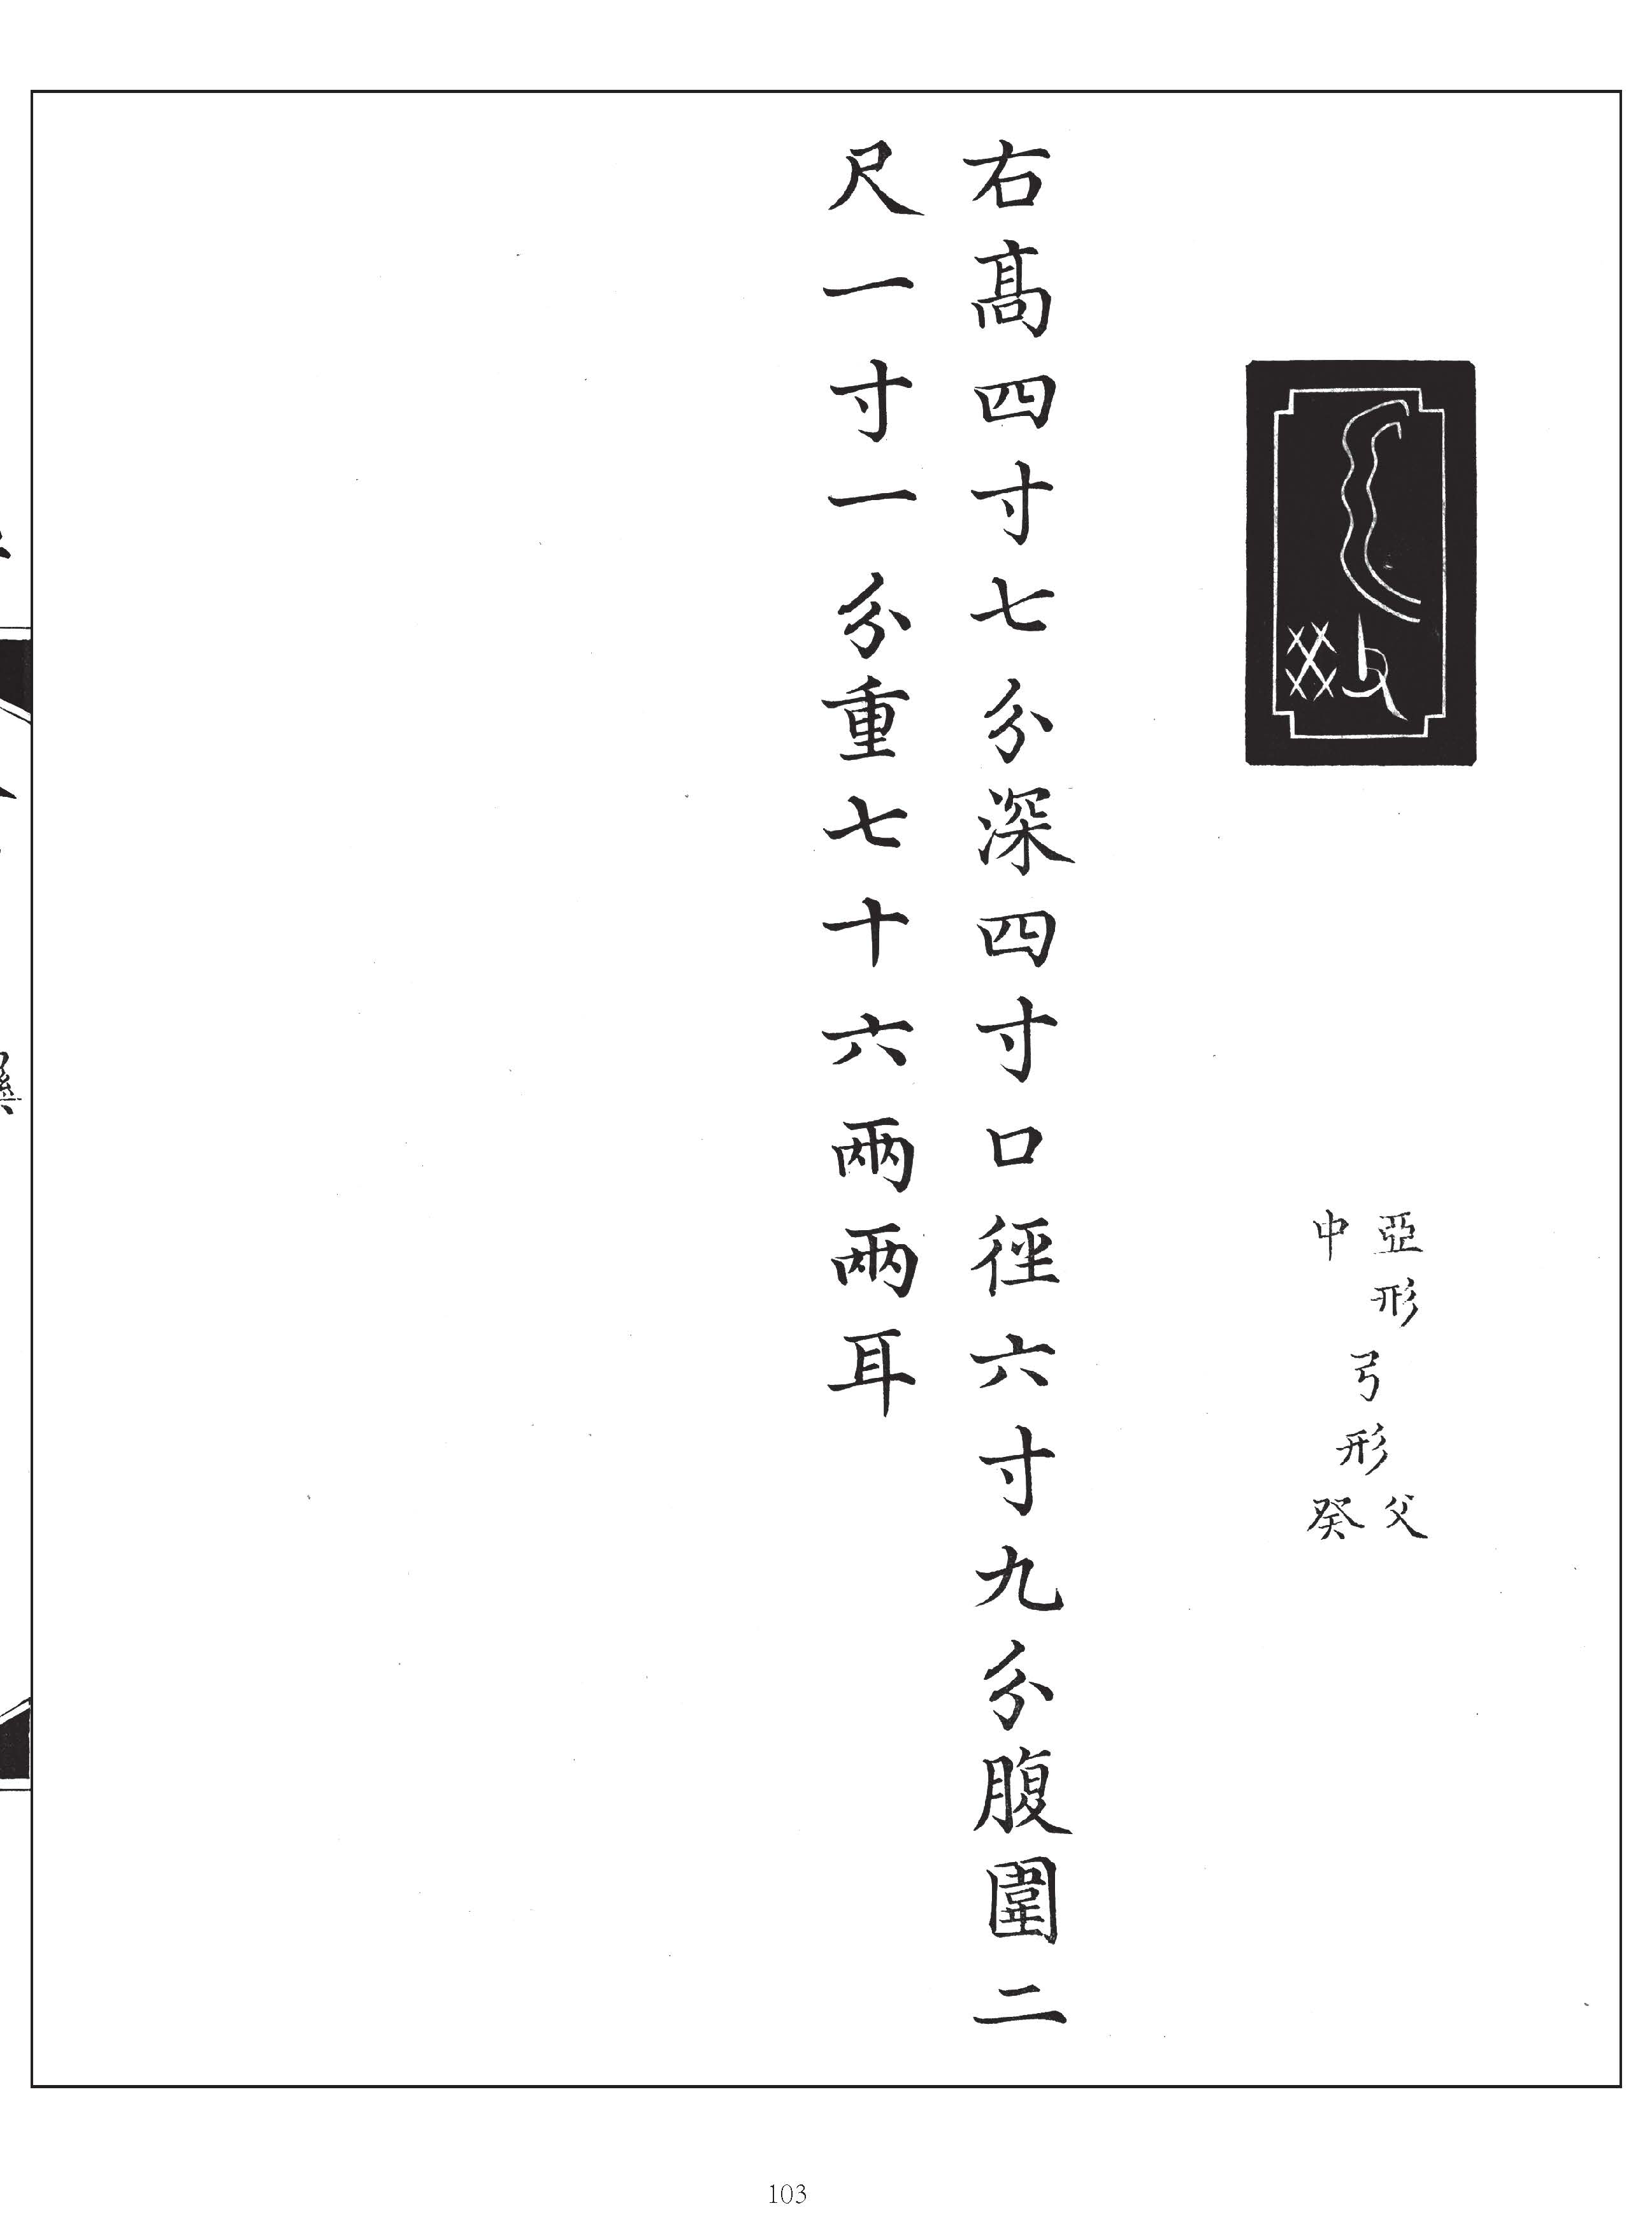 亞形
中
弓形
父
癸
右高四寸七分深四寸口徑六寸九分腹圍二
尺一寸一分重七十六兩兩耳
103